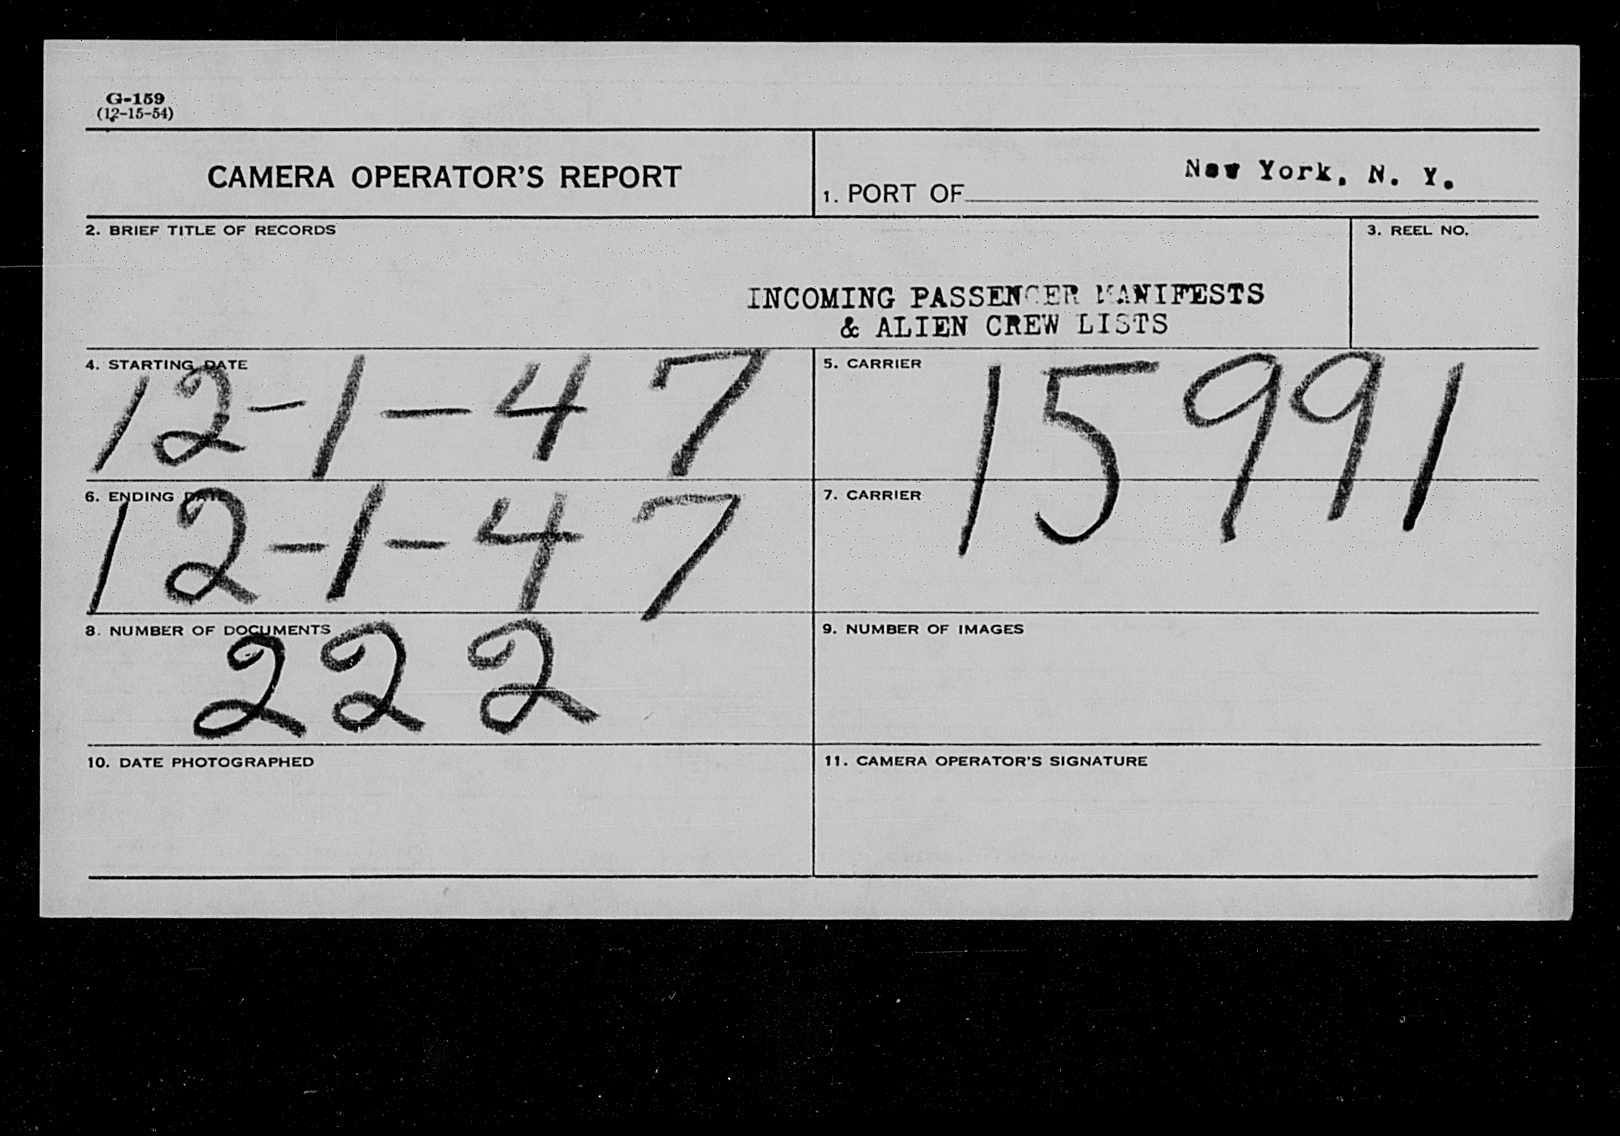 G-159
(12-15-54)
CAMERA OPERATOR'S REPORT
1. PORT OF New York, N. Y.
2. BRIEF TITLE OF RECORDS
3. REEL NO.
INCOMING PASSENGER MANIFESTS
& ALIEN CREW LISTS
4. STARTING DATE
12-1-47
5. CARRIER
15991
6. ENDING DATE
12-1-47
7. CARRIER
8. NUMBER OF DOCUMENTS
222
9. NUMBER OF IMAGES
10. DATE PHOTOGRAPHED
11. CAMERA OPERATOR'S SIGNATURE